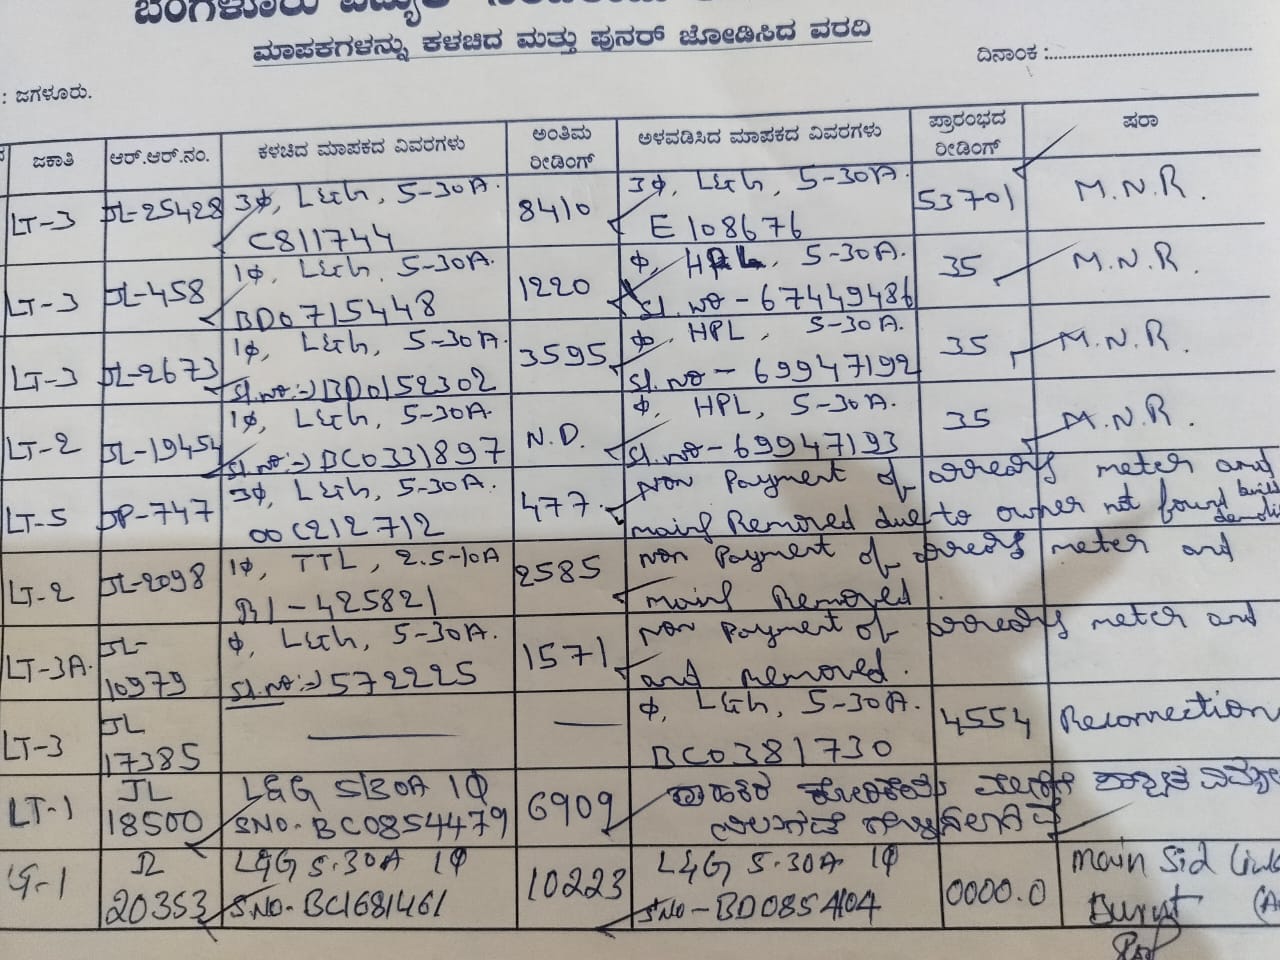 ಬೆಂಗಳೂರು ವಿದ್ಯುತ್
ಮಾಪಕಗಳನ್ನು ಕಳಚಿದ ಮತ್ತು ಪುನರ್ ಜೋಡಿಸಿದ ವರದಿ
ದಿನಾಂಕ :
: ಜಗಳೂರು.
ಜಕಾತಿ ಆರ್.ಆರ್.ನಂ. ಕಳಚಿದ ಮಾಪಕದ ವಿವರಗಳು ಅಂತಿಮ ರೀಡಿಂಗ್ ಅಳವಡಿಸಿದ ಮಾಪಕದ ವಿವರಗಳು ಪ್ರಾರಂಭದ ರೀಡಿಂಗ್ ಷರಾ
LT-3 JL-25428 3Φ, L&G, 5-30A. 8410 3Φ, L&G, 5-30A. 53701 M.N.R.
C811744 E108676
LT-3 JL-458 1Φ, L&G, 5-30A. 1220 Φ, HPL, 5-30A. 35 M.N.R.
BD0715448 Sl. no - 67449486
LT-3 JL-2673 1Φ, L&G, 5-30A. 3595 Φ, HPL, 5-30A. 35 M.N.R.
Sl.no:-) BD0152302 Sl. no - 69947192
LT-2 JL-19454 1Φ, L&G, 5-30A. N.D. Φ, HPL, 5-30A. 35 M.N.R.
Sl.no:-) BC0331897 Sl. no - 69947193
LT-5 JP-747 3Φ, L&G, 5-30A. 477. Non Payment of arrears meter and
00C212712 mains Removed due to owner not found
LT-2 JL-2098 1Φ, TTL, 2.5-10A 2585 Non Payment of arrears meter and
B1-425821 mains Removed.
LT-3A. JL- Φ, L&G, 5-30A. 1571 Non Payment of arrears meter and
10979 Sl.no:-) 572225 and removed.
LT-3 JL — — Φ, L&G, 5-30A. 4554 Reconnection
17385 BC0381730
LT-1 JL L&G 5/30A 1Φ 6909
18500 SNO. BC0854479
JL L&G 5.30A 1Φ 10223 L&G 5.30A 1Φ 0000.0 Main Sid
20353 SNO- BC1681461 SNO - BD0854104 Burst